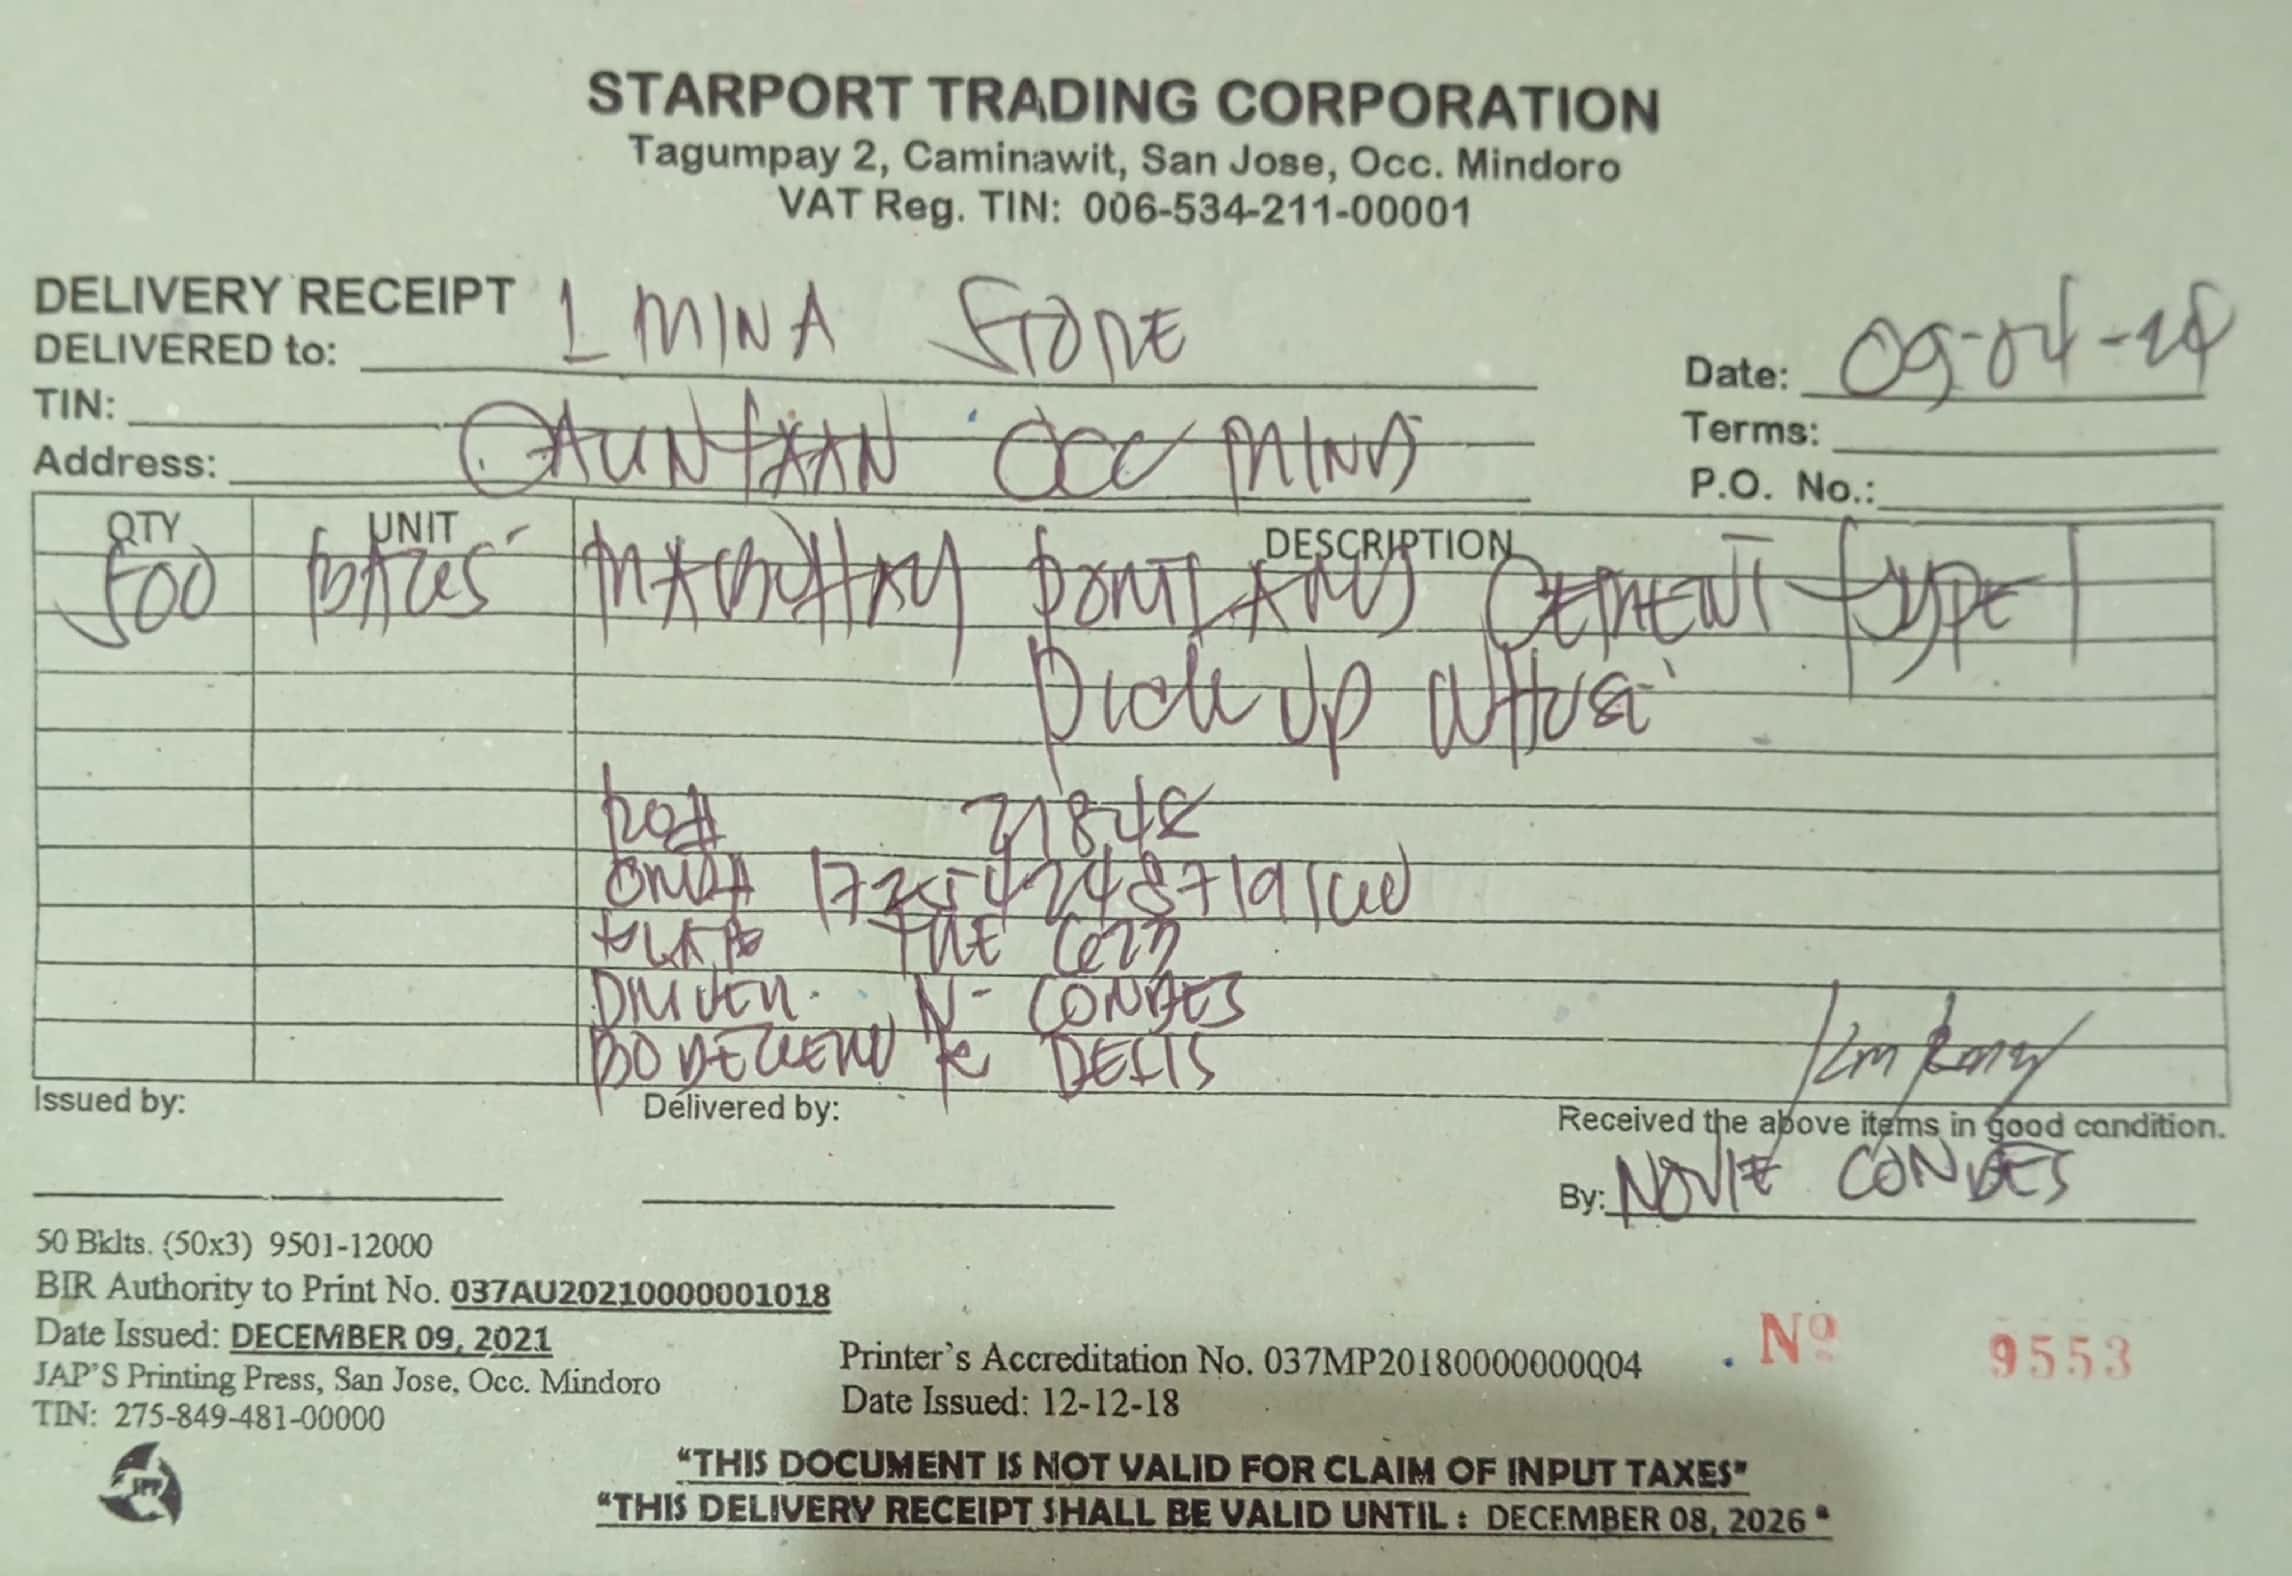 STARPORT TRADING CORPORATION
Tagumpay 2, Caminawit, San Jose, Occ. Mindoro
VAT Reg. TIN: 006-534-211-00001
DELIVERY RECEIPT
DELIVERED to: L MINA STORE
Date: 09-04-24
TIN:
Terms:
Address: CALINTAAN OCC MIND
P.O. No.:
QTY UNIT DESCRIPTION
500 BAGS PORTLAND CEMENT TYPE 1
Pick up WHSE
PO# 21848
172542487191
PLATE#
DRIVER N- CONDES
BODEGERO
Issued by:
Delivered by:
Received the above items in good condition.
By: NOVIE CONDES
50 Bklts. (50x3) 9501-12000
BIR Authority to Print No. 037AU20210000001018
Date Issued: DECEMBER 09, 2021
JAP'S Printing Press, San Jose, Occ. Mindoro
TIN: 275-849-481-00000
Printer's Accreditation No. 037MP20180000000004
Date Issued: 12-12-18
Nº 9553
JPP
"THIS DOCUMENT IS NOT VALID FOR CLAIM OF INPUT TAXES"
"THIS DELIVERY RECEIPT SHALL BE VALID UNTIL : DECEMBER 08, 2026"